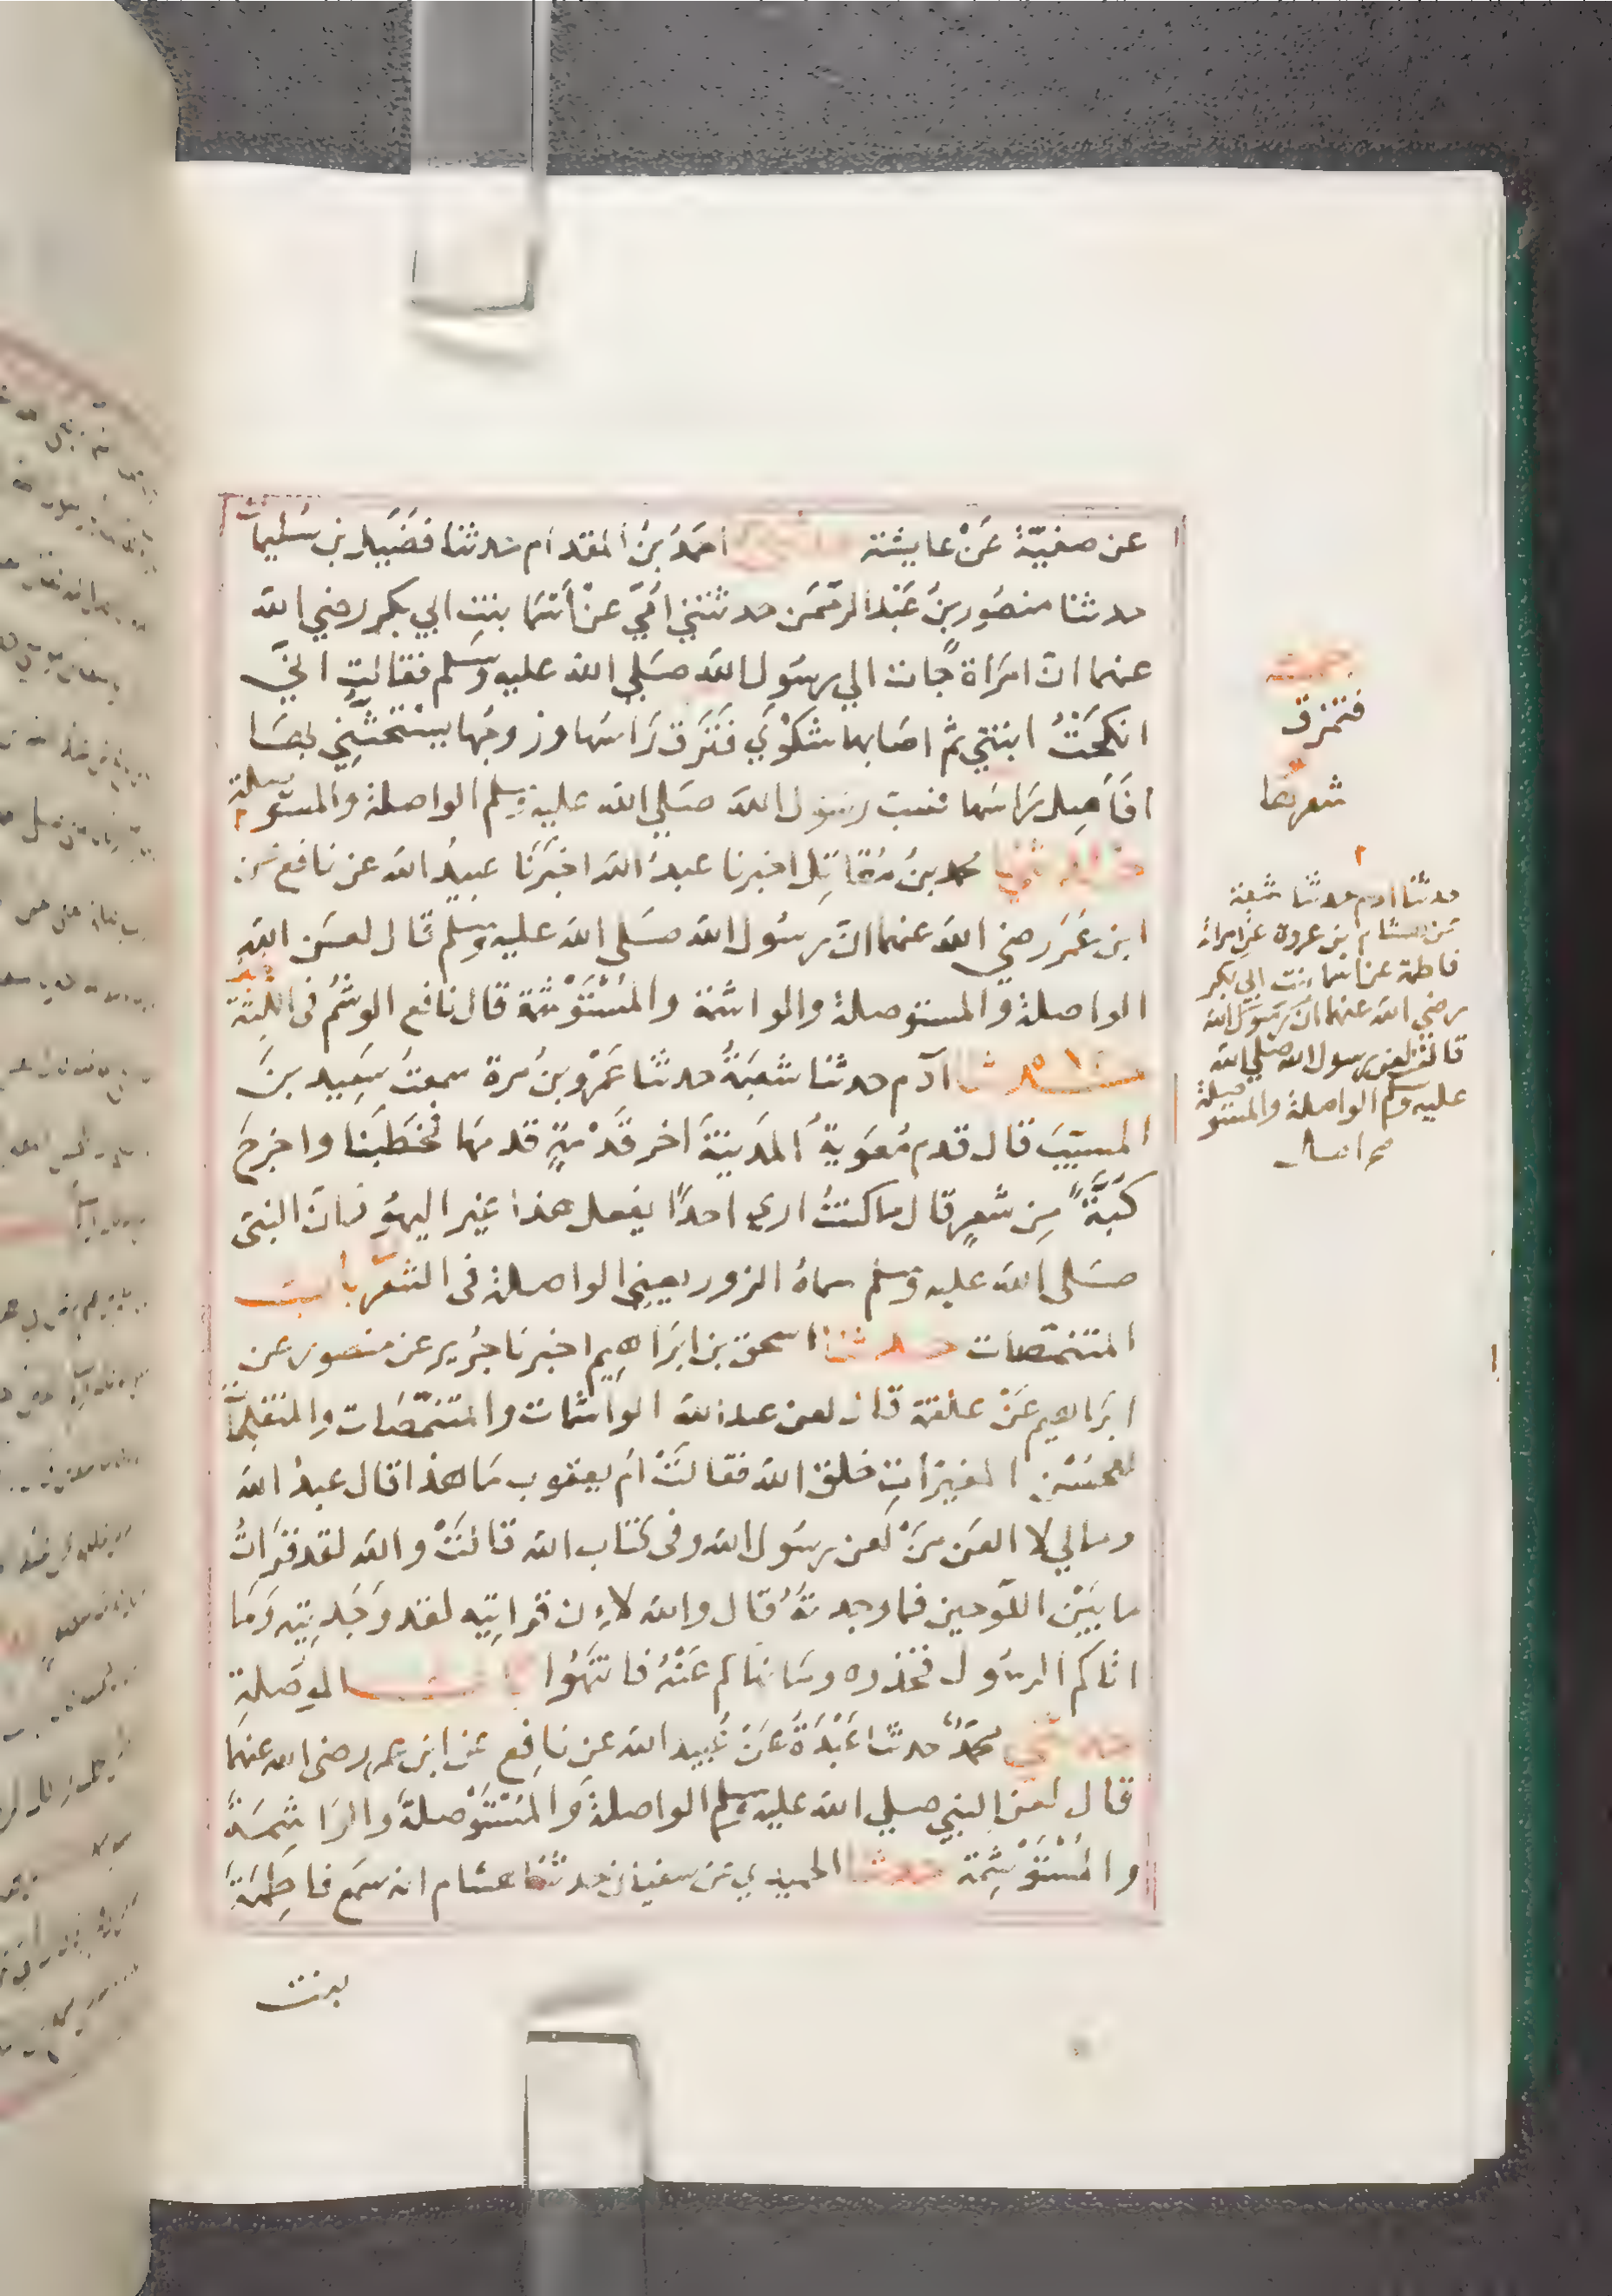 عن صفيّة عَنْ عايشة حدثني احمَدُ بنُ المقدام حدثنا فضَيل بن سُليمان
حدثنا منصُور بنُ عَبْد الرحمَن حدثتني امّي عنْ أسمَا بنتِ ابي بكر رضي الله
عنهما انّ امرَاة جَات الي رسُول الله صَلي الله عليه وسَلم فقالت انّي
انكحْتُ ابنتي ثم اصَابها شكوْي فتمَرق رَاسَها وزوجُها يستحثّنِي بهَا
افأصِل رَاسَها فسب رسُول الله صَلي الله عليه وسلم الواصلة والمستوصلة
حدثني محمد بنُ مُقَاتِل اخبرنا عبدُ الله اخبَرَنا عبيدُ الله عن نافع عن
ابن عُمَر رضي الله عنهما انّ رسُول الله صَلى الله عليه وسلم قال لعَن الله
الواصلة والمستوصلة والواشمة والمُسْتَوْشمة قال نافع الوشمُ فى اللثة
حدثنا آدم حدثنا شعبَةُ حدثنا عَمْرو بن مُرة سمعتُ سَعِيد بنَ
المسيّبَ قال قدم مُعوَيةُ المَدينَةَ اخر قَدْمَةٍ قدمهَا فخطَبَنا واخرجَ
كُبَّةً مِن شعرٍ قال ما كنتُ ارى احدًا يفعل هذا غيْر اليهوُد ان النبى
صَلى الله عليه وسلم سماهُ الزور يعيني الواصلة فى الشعَر بابُ
المتنمّصات حدثنا اسحق بن ابرَاهِيم اخبرنا جرُير عن منصور عن
ابرَاهيم عَنْ علقمة قال لعن عبد الله الواشمات والمتنمّصَات والمتفلجات
للحسْن المغيّرَاتِ خلق الله فقالتْ امُ يعقوب مَا هذا قال عبدُ الله
وما لي لا العَن مَنْ لَعن رسُول الله وفى كتاب الله قالتْ والله لقد قرَاتُ
ما بَيْن اللوحين فما وجدتهُ قال والله لاءِن قراتِيه لقد وَجَدتِيه وَمَا
اتاكم الرسُول فخذوه ومَا نهاكم عَنْهُ فانتهُوا باب الموصُلة
حدثني محمّدٌ حدثنا عَبْدَةُ عَنْ عُبيد الله عن نافِع عن ابن عمر رضى الله عنهمَا
قال لعن النبي صلي الله عليه وسلم الواصلةَ والمسْتَوْصلةَ والوَاشِمَةَ
والمُسْتَوْشِمة حدثنا الحميدي عن سفيان حدثنا هشام انه سمَع فاطِمَةَ
بنت
فتمزق
شعرها
حدثنا ادم حدثنا شعبة
عن هشام بن عروة عن امراته
فاطمة عن اسما بنت ابي بكر
رضي الله عنهما
قالت لعن رسول الله صلي الله
عليه وسلم الواصلة والمستوصلة